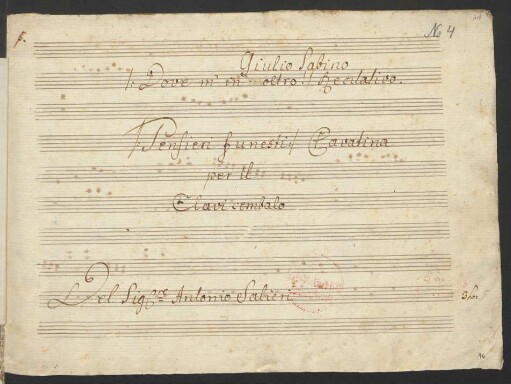 No 4
Giulio Sabino
Dove m' in'oltro! Recitativo.
Pensieri funesti! Cavatina
per il
Clavicembalo
Del Sig.re Antonio Salieri